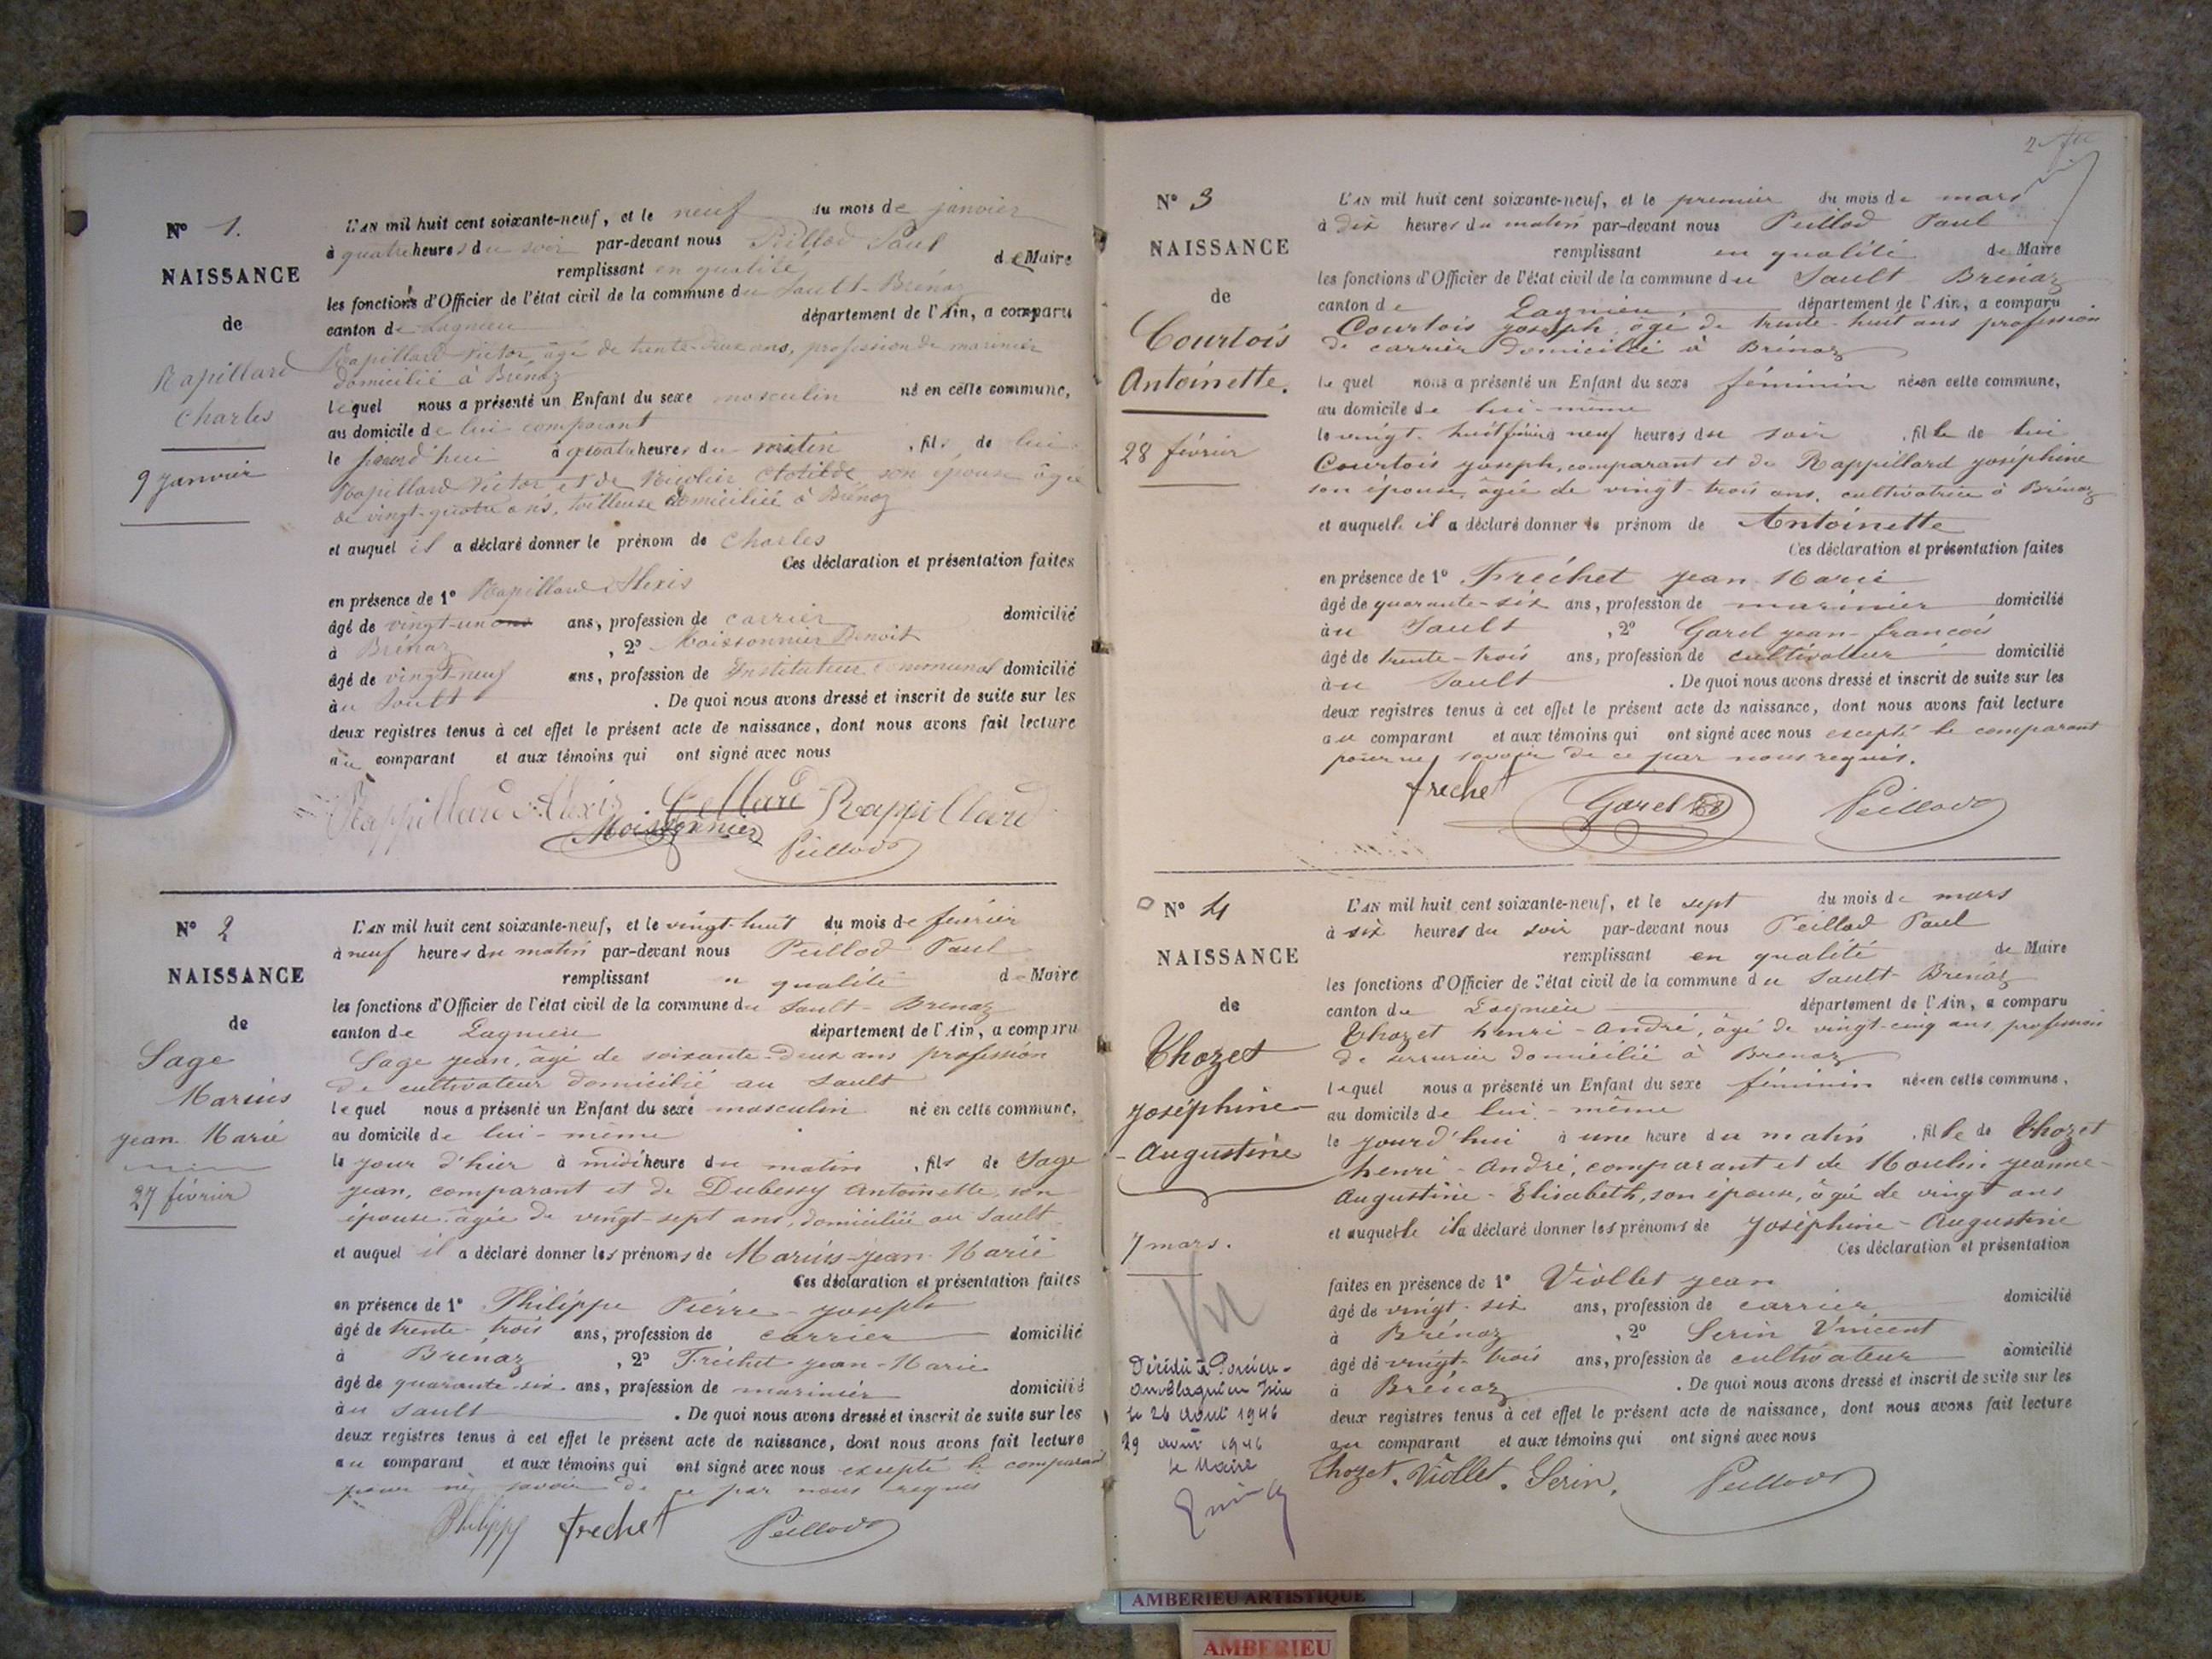 N° 1.
NAISSANCE
de
Rapillard
Charles
9 janvier
L'AN mil huit cent soixante-neuf, et le neuf du mois de janvier
à quatre heures du soir par-devant nous Peillod Paul
remplissant en qualité de Maire
les fonctions d'Officier de l'état civil de la commune du Sault-Brénaz
canton de Lagnieu département de l'Ain, a comparu
Rapillard Victor, âgé de trente-deux ans, profession de marinier
domicilié à Brénaz
lequel nous a présenté un Enfant du sexe masculin né en cette commune,
au domicile de lui comparant
le jourd'hui à quatre heures du matin, fils de lui
Rapillard Victor et de Nicolier Clotilde son épouse âgée
de vingt-quatre ans, tailleuse domiciliée à Brénaz
et auquel il a déclaré donner le prénom de Charles
Ces déclaration et présentation faites
en présence de 1° Rapillard Alexis
âgé de vingt-un ans ans, profession de carrier domicilié
à Brénaz, 2° Moissonnier Benoit
âgé de vingt-neuf ans, profession de Instituteur communal domicilié
au Sault. De quoi nous avons dressé et inscrit de suite sur les
deux registres tenus à cet effet le présent acte de naissance, dont nous avons fait lecture
au comparant et aux témoins qui ont signé avec nous
Rappillard Alexis Rappillard
Moissonnier
Peillod
N° 2
NAISSANCE
de
Sage
Marius
jean Marie
27 février
L'AN mil huit cent soixante-neuf, et le vingt-huit du mois de février
à neuf heures du matin par-devant nous Peillod Paul
remplissant en qualité de Maire
les fonctions d'Officier de l'état civil de la commune du Sault-Brenaz
canton de Lagnieu département de l'Ain, a comparu
Sage jean, âgé de soixante-deux ans profession
de cultivateur domicilié au Sault
lequel nous a présenté un Enfant du sexe masculin né en cette commune,
au domicile de lui-même
le jour d'hier à midi heure du matin, fils de Sage
jean, comparant et de Dubessy Antoinette, son
épouse âgée de vingt-sept ans, domiciliée au Sault
et auquel il a déclaré donner les prénoms de Marius-jean Marie
Ces déclaration et présentation faites
en présence de 1° Philippe Pierre-joseph
âgé de trente-trois ans, profession de carrier domicilié
à Brenaz, 2° Fréchet jean-Marie
âgé de quarante-six ans, profession de marinier domicilié
au Sault. De quoi nous avons dressé et inscrit de suite sur les
deux registres tenus à cet effet le présent acte de naissance, dont nous avons fait lecture
au comparant et aux témoins qui ont signé avec nous excepté le comparant
pour ne savoir de ce par nous requis
Philippe frechet Peillod
2
N° 3
NAISSANCE
de
Courtois
Antoinette.
28 février
L'AN mil huit cent soixante-neuf, et le premier du mois de mars
à dix heures du matin par-devant nous Peillod Paul
remplissant en qualité de Maire
les fonctions d'Officier de l'état civil de la commune du Sault Brénaz
canton de Lagnieu, département de l'Ain, a comparu
Courtois joseph, âgé de trente-huit ans profession
de carrier domicilié à Brénaz
lequel nous a présenté un Enfant du sexe féminin né en cette commune,
au domicile de lui-même
le vingt-huit février neuf heures du soir, fille de lui
Courtois joseph, comparant et de Rappillard joséphine
son épouse, âgée de vingt-trois ans, cultivatrice à Brénaz
et auquelle il a déclaré donner le prénom de Antoinette
Ces déclaration et présentation faites
en présence de 1° Fréchet jean-Marie
âgé de quarante-six ans, profession de marinier domicilié
au Sault, 2° Garel jean-françois
âgé de trente-trois ans, profession de cultivateur domicilié
au Sault. De quoi nous avons dressé et inscrit de suite sur les
deux registres tenus à cet effet le présent acte de naissance, dont nous avons fait lecture
au comparant et aux témoins qui ont signé avec nous excepté le comparant
pour ne savoir de ce par nous requis.
frechet Garel Peillod
N° 4
NAISSANCE
de
Thozet
joséphine
-Augustine
7 mars.
Vu
Décédée à Porcieu-
Amblagnieu Isère
le 26 Août 1946
29 août 1946
le Maire
L'AN mil huit cent soixante-neuf, et le sept du mois de mars
à six heures du soir par-devant nous Peillod Paul
remplissant en qualité de Maire
les fonctions d'Officier de l'état civil de la commune du Sault-Brénaz
canton de Lagnieu département de l'Ain, a comparu
Thozet henri-André, âgé de vingt-cinq ans, profession
de serrurier domicilié à Brenaz
lequel nous a présenté un Enfant du sexe féminin née en cette commune,
au domicile de lui-même
le jourd'hui à une heure du matin, fille de Thozet
henri-André, comparant et de Moulin jeanne-
Augustine-Elisabeth, son épouse, âgée de vingt ans
et auquelle il a déclaré donner les prénoms de joséphine-Augustine
Ces déclaration et présentation
faites en présence de 1° Viollet jean
âgé de vingt-six ans, profession de carrier, domicilié
à Brénaz, 2° Serin Vincent
âgé de vingt-trois ans, profession de cultivateur domicilié
à Brénaz. De quoi nous avons dressé et inscrit de suite sur les
deux registres tenus à cet effet le présent acte de naissance, dont nous avons fait lecture
au comparant et aux témoins qui ont signé avec nous
Thozet. Viollet. Serin. Peillod
AMBERIEU ARTISTIQUE
AMBERIEU